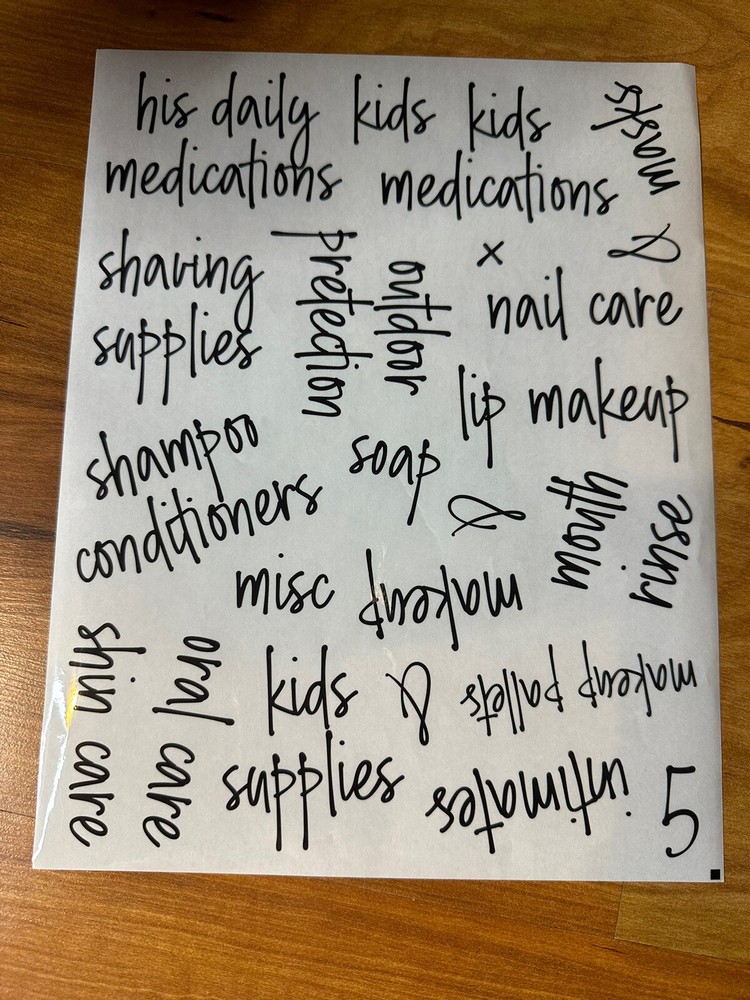 his daily kids kids
medications medications
masks
&
shaving
supplies
outdoor
protection
x
nail care
lip makeup
shampoo
conditioners
soap
&
mouth
rinse
misc makeup
skin care
oral care
kids
supplies
&
makeup pallets
intimates
5